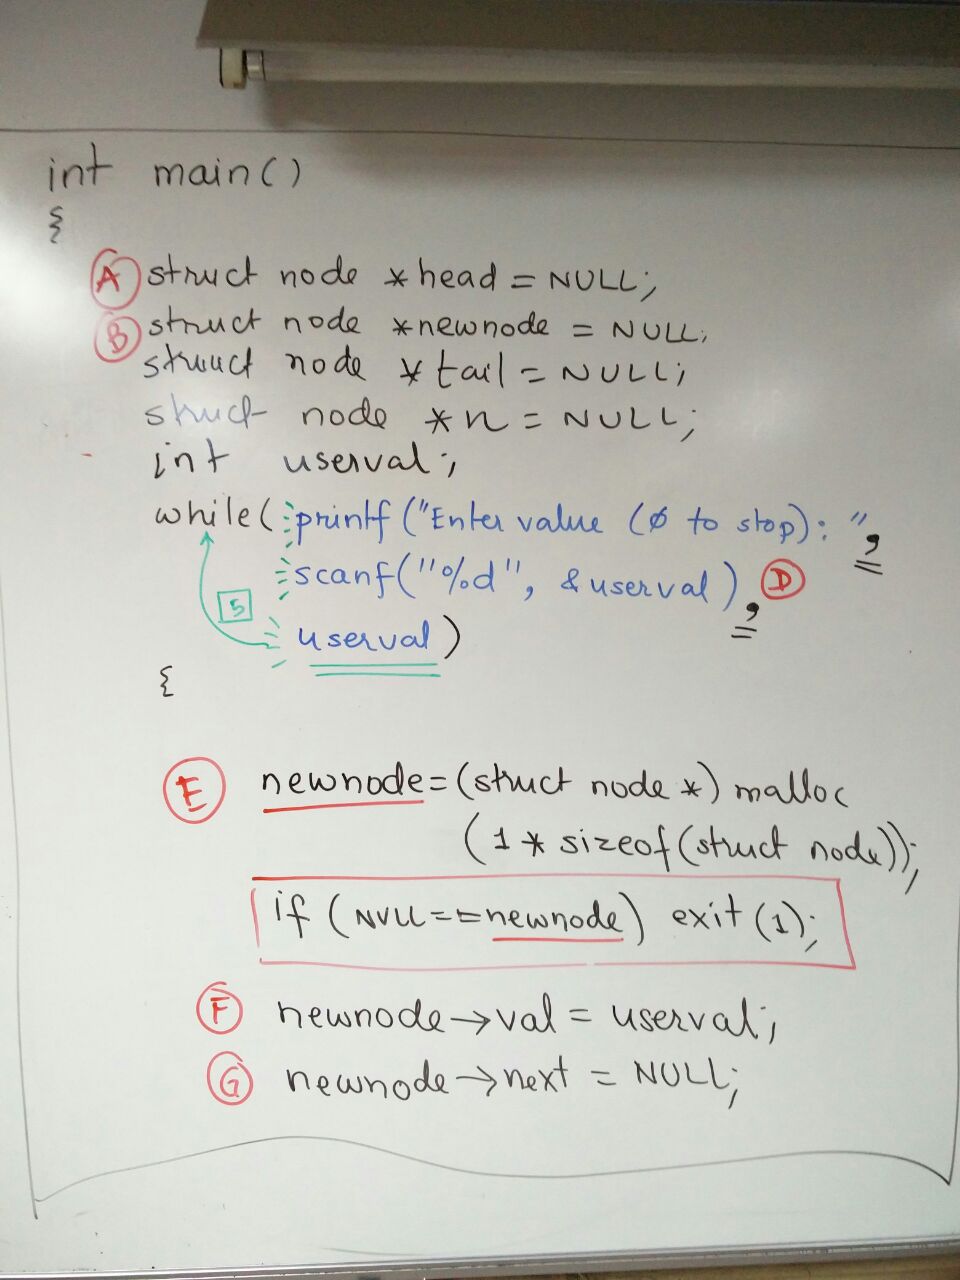 int main()
{
A struct node *head = NULL;
B struct node *newnode = NULL;
struct node *tail = NULL;
struct node *n = NULL;
int userval;
while( printf("Enter value (0 to stop): ",
scanf("%d", &userval), D
5
userval)
{
E newnode = (struct node *) malloc
(1 * sizeof(struct node));
if (NULL == newnode) exit(1);
F newnode→val = userval;
G newnode→next = NULL;